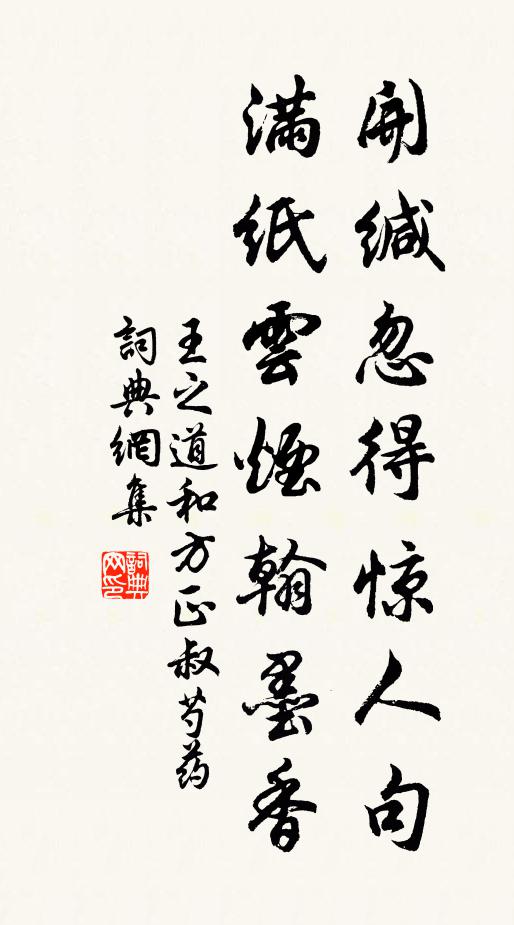 開缄忽得惊人句
满紙雲煙翰墨香
王之道和方正叔芍药
詞典網集
詞典网印